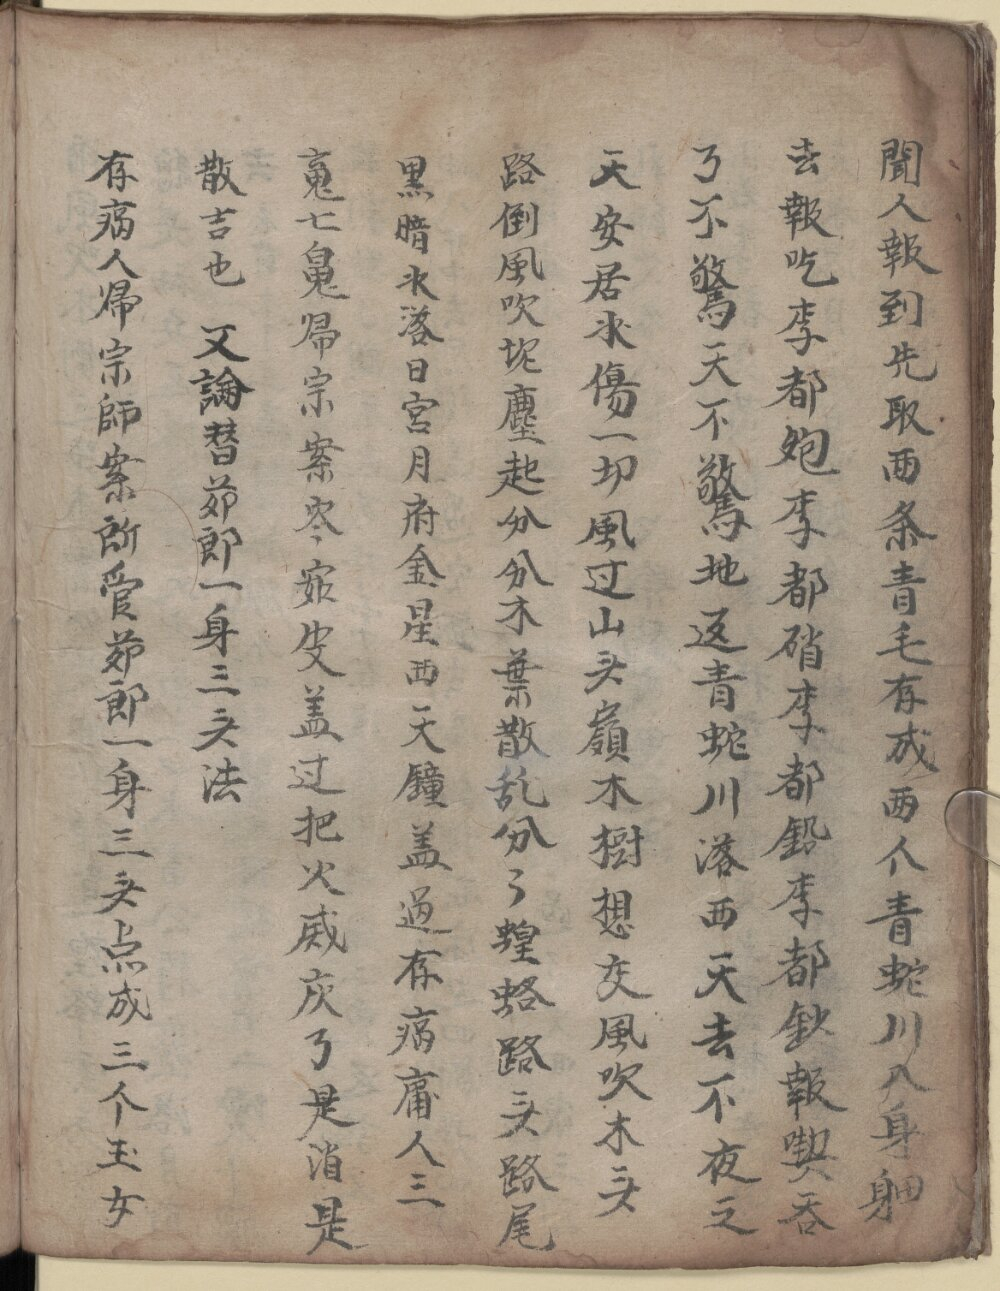 聞人報到先取西条青毛存成两个青蛇川入身細
去報吃李都炮李都硝李都鉛李都鈔報喫吞
了不驚天不驚地返青蛇川落西天去不夜之
天安居氷傷一切風过山头嶺木樹想交風吹木头
路倒風吹坭塵起分分木葉散乱分了蝗蛒路头路尾
黒暗氷落日宮月府金星西天鐘盖過存病庸人三
䰟七䰟帰宗案岑寂皮盖过把火烕灰了是消是
散吉也 又論替茆郎一身三头法
存病人帰宗師案所受茆郎一身三头点成三个玉女